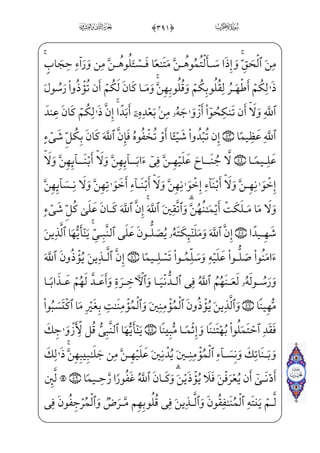 ﴿٣٩١﴾
مِنَ ٱلْحَقِّ ۚ وَإِذَا سَأَلْتُمُوهُنَّ مَتَٰعًا فَسْـَٔلُوهُنَّ مِن وَرَآءِ حِجَابٍ ۚ
ذَٰلِكُمْ أَطْهَرُ لِقُلُوبِكُمْ وَقُلُوبِهِنَّ ۚ وَمَا كَانَ لَكُمْ أَن تُؤْذُوا۟ رَسُولَ
ٱللَّهِ وَلَآ أَن تَنكِحُوٓا۟ أَزْوَٰجَهُۥ مِنۢ بَعْدِهِۦٓ أَبَدًا ۚ إِنَّ ذَٰلِكُمْ كَانَ عِندَ
ٱللَّهِ عَظِيمًا ۝٥٣ إِن تُبْدُوا۟ شَيْـًٔا أَوْ تُخْفُوهُ فَإِنَّ ٱللَّهَ كَانَ بِكُلِّ شَىْءٍ
عَلِيمًا ۝٥٤ لَّا جُنَاحَ عَلَيْهِنَّ فِىٓ ءَابَآئِهِنَّ وَلَآ أَبْنَآئِهِنَّ وَلَآ
إِخْوَٰنِهِنَّ وَلَآ أَبْنَآءِ إِخْوَٰنِهِنَّ وَلَآ أَبْنَآءِ أَخَوَٰتِهِنَّ وَلَا نِسَآئِهِنَّ
وَلَا مَا مَلَكَتْ أَيْمَٰنُهُنَّ ۗ وَٱتَّقِينَ ٱللَّهَ ۚ إِنَّ ٱللَّهَ كَانَ عَلَىٰ كُلِّ شَىْءٍ
شَهِيدًا ۝٥٥ إِنَّ ٱللَّهَ وَمَلَٰٓئِكَتَهُۥ يُصَلُّونَ عَلَى ٱلنَّبِىِّ ۚ يَٰٓأَيُّهَا ٱلَّذِينَ
ءَامَنُوا۟ صَلُّوا۟ عَلَيْهِ وَسَلِّمُوا۟ تَسْلِيمًا ۝٥٦ إِنَّ ٱلَّذِينَ يُؤْذُونَ ٱللَّهَ
وَرَسُولَهُۥ لَعَنَهُمُ ٱللَّهُ فِى ٱلدُّنْيَا وَٱلْءَاخِرَةِ وَأَعَدَّ لَهُمْ عَذَابًا
مُّهِينًا ۝٥٧ وَٱلَّذِينَ يُؤْذُونَ ٱلْمُؤْمِنِينَ وَٱلْمُؤْمِنَٰتِ بِغَيْرِ مَا ٱكْتَسَبُوا۟
فَقَدِ ٱحْتَمَلُوا۟ بُهْتَٰنًا وَإِثْمًا مُّبِينًا ۝٥٨ يَٰٓأَيُّهَا ٱلنَّبِىُّ قُل لِّأَزْوَٰجِكَ
وَبَنَاتِكَ وَنِسَآءِ ٱلْمُؤْمِنِينَ يُدْنِينَ عَلَيْهِنَّ مِن جَلَٰبِيبِهِنَّ ۚ ذَٰلِكَ
أَدْنَىٰٓ أَن يُعْرَفْنَ فَلَا يُؤْذَيْنَ ۗ وَكَانَ ٱللَّهُ غَفُورًا رَّحِيمًا ۝٥٩ ۞ لَّئِن
لَّمْ يَنتَهِ ٱلْمُنَٰفِقُونَ وَٱلَّذِينَ فِى قُلُوبِهِم مَّرَضٌ وَٱلْمُرْجِفُونَ فِى